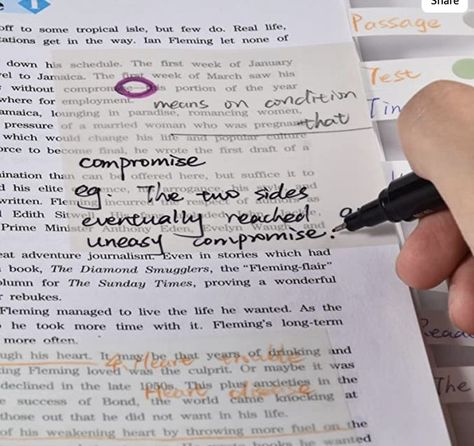 Share
off to some tropical isle, but few do. Real life,
ations get in the way. Ian Fleming let none of
Passage
down his schedule. The first week of January
el to Jamaica. The first week of March saw his
Test
without compromise this portion of the year
where for employment.
means on condition
that
amaica, lounging in paradise, romancing women,
pressure of a married woman who was pregnant
which would change his life and popular culture
orce to become final, he wrote the first draft of a
compromise
ination than can be offered here, but suffice it to
eg: The two sides
eventually reached
uneasy compromise.
his elite
written. Fleming incurred the
Edith
Prime Minister Anthony Eden, Evelyn Waugh, and
eat adventure journalism. Even in stories which had
book, The Diamond Smugglers, the "Fleming-flair"
olumn for The Sunday Times, proving a wonderful
r rebukes.
Fleming managed to live the life he wanted. As the
he took more time with it. Fleming's long-term
more often.
ugh his heart. It may be that years of drinking and
ing Fleming loved was the culprit. Or maybe it was
declined in the late 1950s. This plus anxieties in the
e success of Bond, the world came knocking at
those out that he did not want in his life.
of his weakening heart by throwing more fuel on the
books he wanted
Heart disease
The